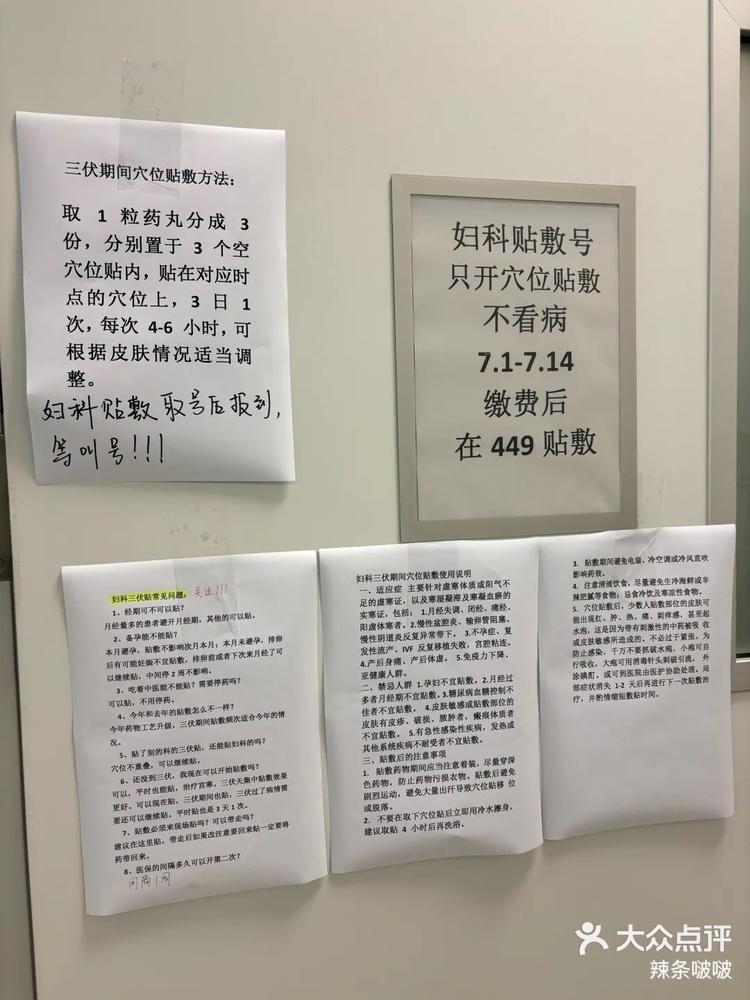 三伏期间穴位贴敷方法：
取 1 粒药丸分成 3
份，分别置于 3 个空
穴位贴内，贴在对应时
点的穴位上，3 日 1
次，每次 4-6 小时，可
根据皮肤情况适当调
整。
妇科贴敷取号后报到，
等叫号!!!
妇科贴敷号
只开穴位贴敷
不看病
7.1-7.14
缴费后
在 449 贴敷
妇科三伏贴常见问题：
1、经期可不可以贴？
月经量多的患者避开月经期，其他的可以贴。
2、备孕能不能贴？
本月避孕，贴敷不影响次月本月；本月未避孕，排卵
后有可能妊娠不宜贴敷，排卵前或者下次来月经了可
以继续贴，中间停 2 周不影响。
3、吃着中医能不能贴？需要停药吗？
可以贴，不用停药。
4、今年和去年的贴敷怎么不一样？
今年药物工艺升级，三伏期间贴敷频次适合今年的情
况。
5、贴了别的科的三伏贴，还能贴妇科的吗？
穴位不重叠，可以继续贴。
6、还没到三伏，我现在可以开始贴敷吗？
可以，平时也能贴，治疗宫寒，三伏天集中贴敷效果
更好。可以现在贴，三伏期间也贴，三伏过了病情需
要还可以继续贴。平时贴也是 3 天 1 次。
7、贴敷必须来现场贴吗？可以带走吗？
建议在这里贴，带走后如果改注意要回来贴一定要将
药带回来。
8、医保的间隔多久可以开第二次？
间隔1周
妇科三伏期间穴位贴敷使用说明
一、适应症 主要针对虚寒体质或阳气不
足的虚寒证，以及寒湿凝滞及寒凝血瘀的
实寒证，包括：1.月经失调、闭经、痛经、
阳虚体寒者。2.慢性盆腔炎、输卵管阻塞、
慢性阴道炎反复异常带下。3.不孕症、复
发性流产、IVF 反复移植失败，宫腔粘连。
4.产后身痛、产后体虚。5.免疫力下降、
亚健康人群。
二、禁忌人群 1.孕妇不宜贴敷。2.月经过
多者月经期不宜贴敷。3.糖尿病血糖控制不
佳者不宜贴敷。4.皮肤敏感或贴敷部位的
皮肤有皮疹、破损、脓肿者，瘢痕体质者
不宜贴敷。5.有急性感染性疾病，发热或
其他系统疾病不耐受者不宜贴敷。
三、贴敷后的注意事项
1. 贴敷药物期间应当注意着装，尽量穿深
色药物，防止药物污损衣物。贴敷后避免
剧烈运动，避免大量出汗导致穴位贴移 位
或脱落。
2. 不要在取下穴位贴后立即用冷水擦身，
建议取贴 4 小时后再洗浴。
3. 贴敷期间避免电扇、冷空调或冷风直吹
影响药效。
4. 注意清淡饮食，尽量避免生冷海鲜或辛
辣肥腻等食物；忌食冷饮及寒凉性食物。
5. 穴位贴敷后，少数人贴敷部位的皮肤可
能出现红、肿、热、痛、刺痒感，甚至起
水疱，这是因为带有刺激性的中药被吸 收
或皮肤敏感所造成的。不必过于紧张，为
防止感染，千万不要抓破水疱，小疱可自
行吸收，大疱可用消毒针头刺破引流，外
涂碘酊。或可到医院由医护协助处理。局
部症状消失 1-2 天后再进行下一次贴敷治
疗，并酌情缩短敷贴时间。
大众点评
辣条啵啵